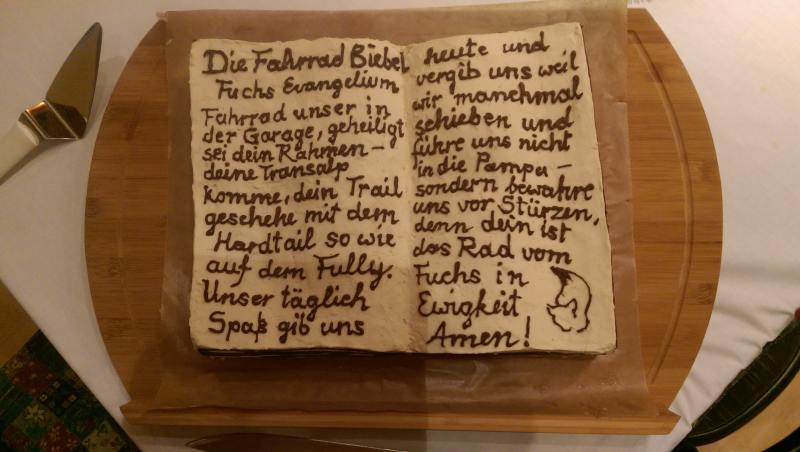 Die Fahrrad Biebel
Fuchs Evangelium
Fahrrad unser in
der Garage, geheiligt
sei dein Rahmen -
deine Transalp
komme, dein Trail
geschehe mit dem
Hardtail so wie
auf dem Fully.
Unser täglich
Spaß gib uns
heute und
vergib uns weil
wir manchmal
schieben und
führe uns nicht
in die Pampa -
sondern bewahre
uns vor Stürzen,
denn dein ist
das Rad vom
Fuchs in
Ewigkeit
Amen!